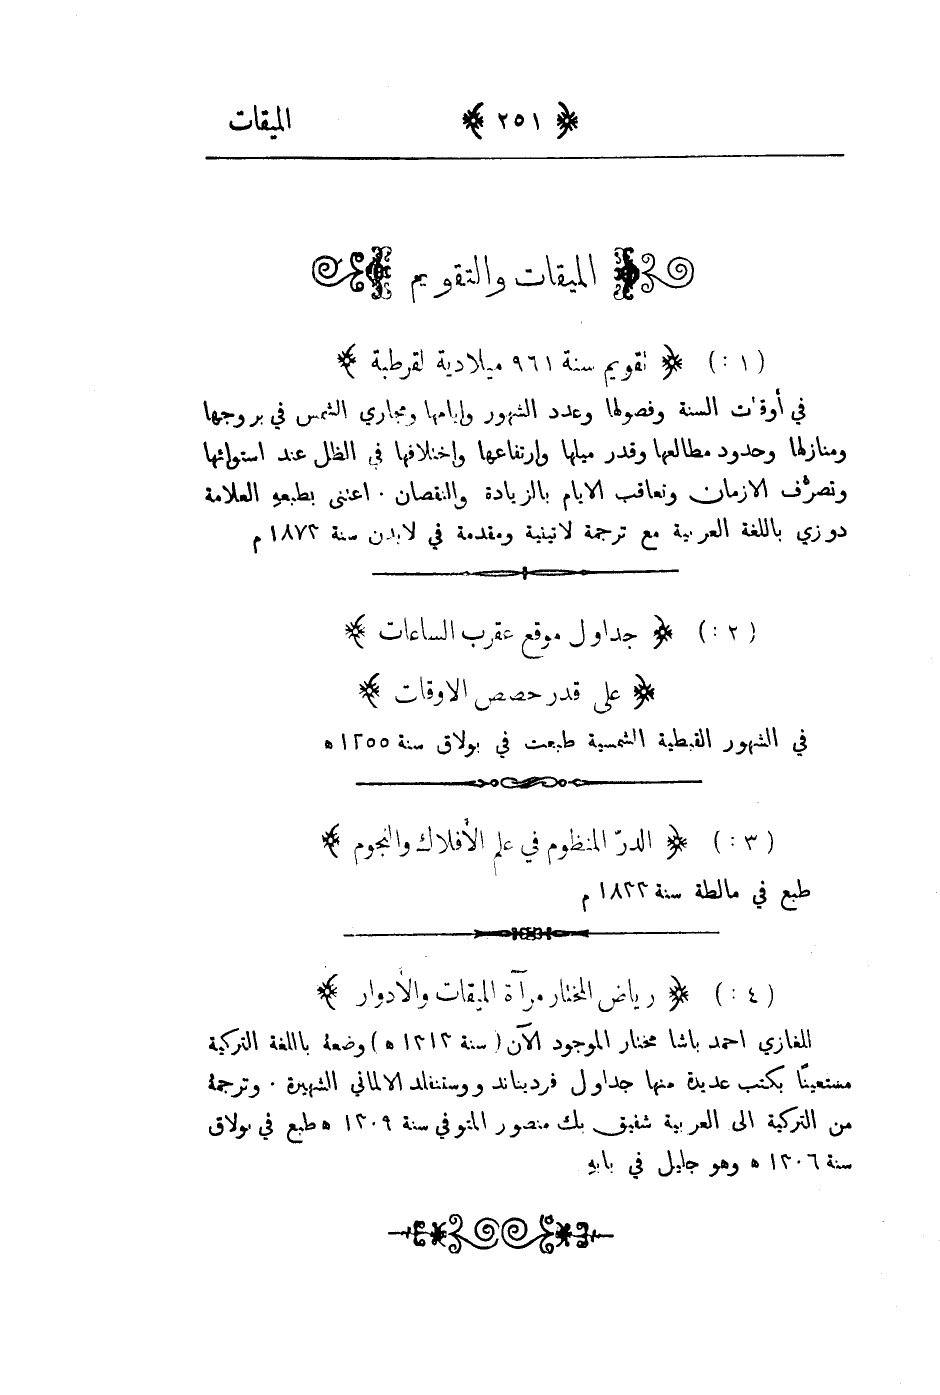 الميقات ﴿ ٢٥١ ﴾
الميقات والتقويم
( ١ : ) ﴿ تقويم سنة ٩٦١ ميلادية لقرطبة ﴾
في أوقات السنة وفصولها وعدد الشهور وايامها ومجاري الشمس في بروجها
ومنازلها وحدود مطالعها وقدر ميلها وارتفاعها واختلافها في الظل عند استوائها
وتصرُّف الازمان وتعاقب الايام بالزيادة والنقصان ٠ اعتنى بطبعهِ العلامة
دوزي باللغة العربية مع ترجمة لاتينية ومقدمة في لايدن سنة ١٨٧٣ م
( ٢ : ) ﴿ جداول موقع عقرب الساعات ﴾
﴿ على قدر حصص الاوقات ﴾
في الشهور القبطية الشمسية طبعت في بولاق سنة ١٢٥٥ ه
( ٣ : ) ﴿ الدرّ المنظوم في علم الأفلاك والنجوم ﴾
طبع في مالطة سنة ١٨٣٣ م
( ٤ : ) ﴿ رياض المختار مرآة الميقات والأدوار ﴾
للغازي احمد باشا مختار الموجود الآن ( سنة ١٣١٣ ه ) وضعهُ باللغة التركية
مستعينًا بكتب عديدة منها جداول فرديناند ووستنفلد الالماني الشهيرة ٠ وترجمهُ
من التركية الى العربية شفيق بك منصور المتوفي سنة ١٣٠٩ ه طبع في بولاق
سنة ١٣٠٦ ه وهو جليل في بابهِ